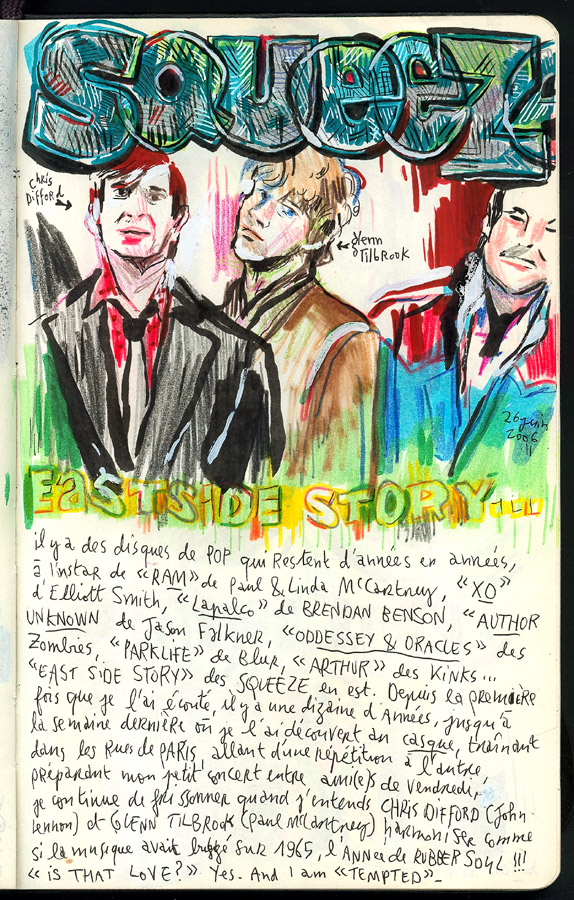 SQUEEZE
Chris
Difford
Glenn
TilBrook
26 juin
2006
EASTSIDE STORY...
il y a des disques de POP qui Restent d'années en années,
à l'instar de «RAM» de Paul & Linda McCartney, "XO"
d'Elliott Smith, "Lapalco" de BRENDAN BENSON, "AUTHOR
UNKNOWN de Jason Falkner, «ODDESSEY & ORACLES» des
Zombies, "PARKLIFE" de Blur, «ARTHUR» des KINKS...
"EAST SIDE STORY" des SQUEEZE en est. Depuis la première
fois que je l'ai écouté, il y a une dizaine d'Années, jusqu'à
la semaine dernière où je l'ai découvert au casque, traînant
dans les Rues de PARIS, allant d'une répétition à l'autre,
préparant mon petit concert entre ami(e)s de vendredi,
je continue de frissonner quand j'entends CHRIS DIFFORD (John
Lennon) et GLENN TILBROOK (Paul McCartney) harmoniser comme
si la musique avait buggé sur 1965, l'ANnée de RUBBER SOUL !!!
«IS THAT LOVE?» Yes. And I am «TEMPTED».